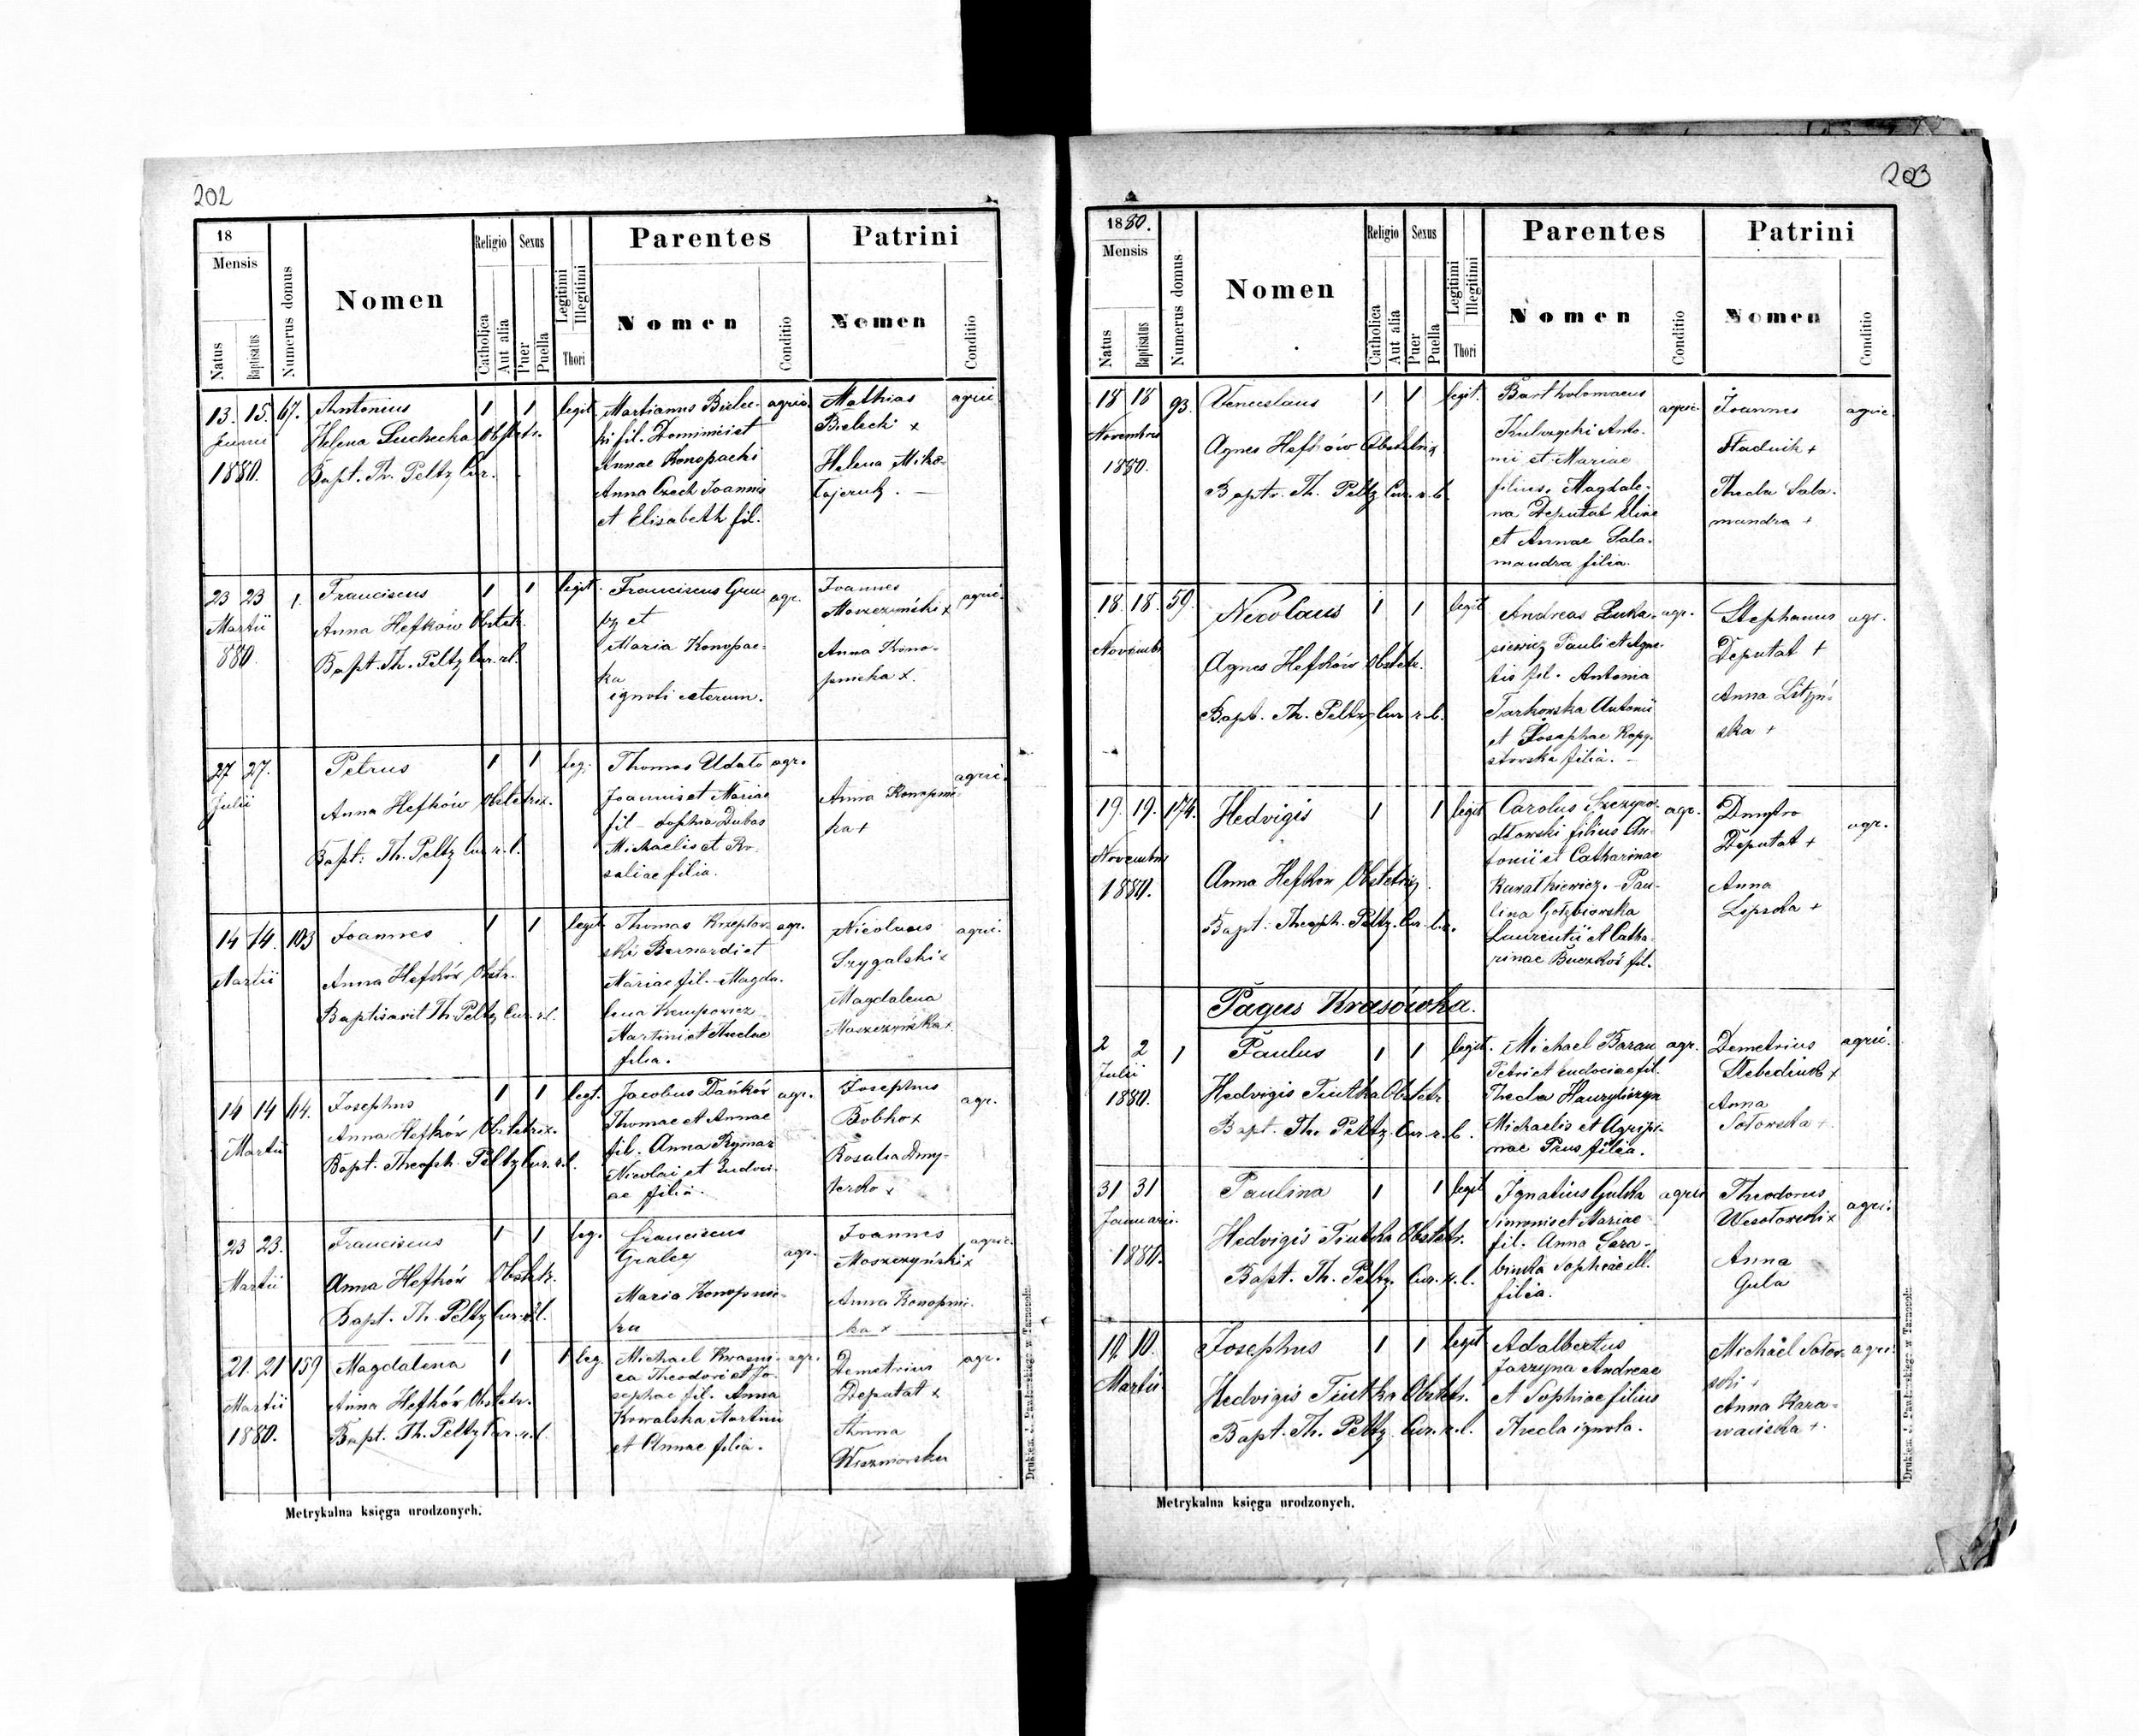 202
18
Mensis
Natus
Baptisatus
Numerus domus
Nomen
Religio
Catholica
Aut alia
Sexus
Puer
Puella
Legitimi
Illegitimi
Thori
Parentes
Nomen
Conditio
Patrini
Nomen
Conditio
13. 15. 67. Antonius 1 1 legit. agric. Mathias agric.
Junii Helena Suchecka Obstetr. ki fil. Dominici et Bielecki x
1880. Bapt. Th. Peltz Cur. Annae Konopacki Helena Miko-
Anna Czech Joannis
et Elisabeth fil.
23 23 1. Franciscus 1 1 legit. Franciscus agr. Joannes agric.
Martii Anna Hefków Obstetr. et Moszczyński x
880. Bapt. Th. Peltz Cur. r.l. Maria Konopac- Anna Kono-
ka pnicka x.
27 27. Petrus 1 1 leg. Thomas agr. agric.
Julii Anna Hefków Obstetrix. Joannis et Mariae Anna Konopni-
fil - Sophia Dubas ka +
Bapt: Th. Peltz Cur. r.l. Michaelis et Ro-
saliae filia.
14 14. 103 Joannes 1 1 legit. Thomas agr. Nicolaus agric.
Martii Anna Hefków Obstr. ski Bernardi et Szygalski x
Mariae fil. - Magda- Magdalena
Baptisavit Th. Peltz Cur. r.l. lena Moszczyńska x
Martini et Theclae
filia.
14 14 64. Josephus 1 1 legt. Jacobus Dańków agr. Josephus agr.
Martii Anna Hefków Obstetrix. Thomae et Annae Bobko x
Bapt. Theoph. Peltz Cur. r.l. fil. Anna Rymar Rosalia Dmy-
Nicolai et Eudoci- terko x
ae filia.
23 23. Franciscus 1 1 leg. Franciscus agr. Joannes agric.
Martii Anna Hefków Obstetr. Moszczyński x
Bapt. Th. Peltz Cur. r.l. Maria Konopnic- Anna Konopni-
ka ka x
21. 21 159 Magdalena 1 1 leg. Michael agr. Demetrius agr.
Martii Anna Hefków Obstetr. ca Theodori et Jo- Deputat x
1880. Bapt. Th. Peltz Cur. r.l. sephae fil. Anna Anna
Kowalska Martini
et Annae filia.
Metrykalna księga urodzonych.
Drukiem J. Pawłowskiego w Tarnopolu.
203
1880.
Mensis
Natus
Baptisatus
Numerus domus
Nomen
Religio
Catholica
Aut alia
Sexus
Puer
Puella
Legitimi
Illegitimi
Thori
Parentes
Nomen
Conditio
Patrini
Nomen
Conditio
18 18 93. Venceslaus 1 1 legit. Bartholomaeus agric. Joannes agric.
Novembris Agnes Hefków Obstetrix Kulczycki Anto- Stadnik +
1880. nii et Mariae
Baptr. Th. Peltz Cur. r. l. filius, Magdale- Thecla Sala-
na Deputat Eliae mandra +
et Annae Sala-
mandra filia.
18. 18. 59. Nicolaus 1 1 legit Andreas Łuka- agr. Stephanus agr.
Novembr. Agnes Hefków Obstetr. siewicz Pauli et Agne- Deputat +
tis fil. Antonia Anna
Bapt. Th. Peltz Cur r. l. Tarkowska Antonii ska +
et Josephae
filia.
19. 19. 174. Hedvigis 1 1 legit Carolus agr. Dmytro agr.
Novembr. Anna Hefków Obstetrix. filius An- Deputat +
1880. tonii et Catharinae Anna
Bapt: Theoph. Peltz. Cur. Pau- Lipska +
lina Gołębiowska
Laurentii et Catha-
rinae Buczkoś fil.
Pagus Krasówka.
2 2 1 Paulus 1 1 legit. Michael Baran agr. Demetrius agric.
Julii Hedvigis Tiutka Obstetr. Petri et Eudociae fil.
1880. Thecla Anna
Bapt. Th. Peltz. Cur. r. l. Michaelis et Agripi- Sołowska +
nae Prus filia.
31 31 Paulina 1 1 legit Ignatius Gulka agric Theodorus agric.
Januarii. Hedvigis Tiutka Obstetr. Simonis et Mariae Wesołowski x
1880. fil. Anna Sera- Anna
Bapt. Th. Peltz. Cur. r. l. Sophiae ill. Gula
filia.
10. 10. Josephus 1 1 legit Adalbertus Michael agric.
Martii Hedvigis Tiutka Obstetr. Jarzyna Andreae
Bapt. Th. Peltz Cur. r. l. et Sophiae filius Anna Kara-
Thecla ignota.
Metrykalna księga urodzonych.
Drukiem J. Pawłowskiego w Tarnopolu.